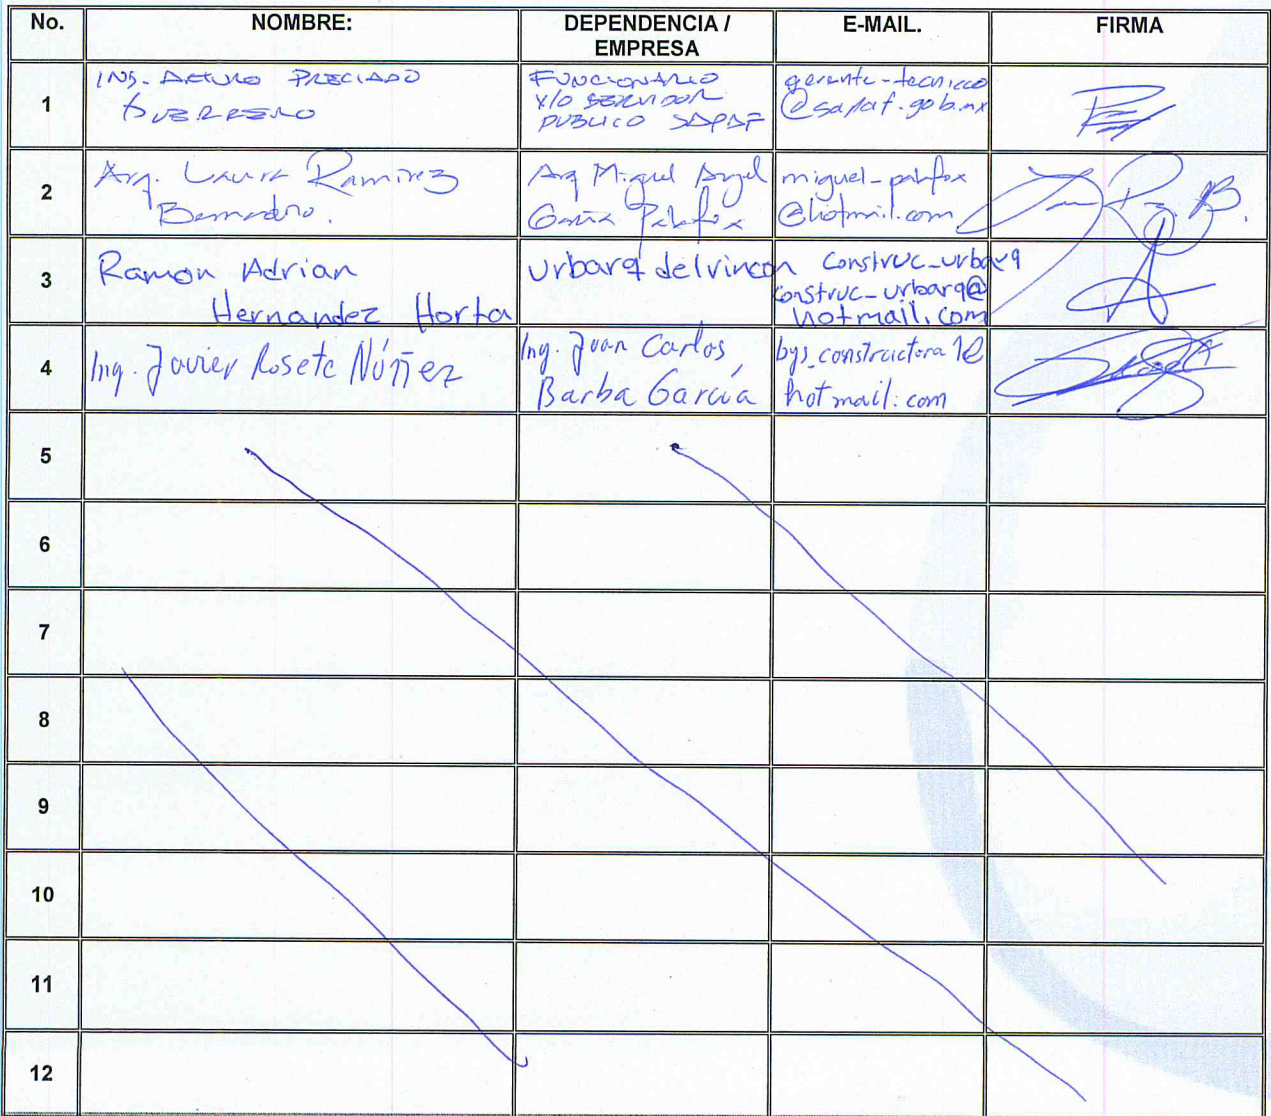 No. NOMBRE: DEPENDENCIA / EMPRESA E-MAIL. FIRMA
1
ING. ARTURO PRECIADO
GUERRERO
FUNCIONARIO
Y/O SERVIDOR
PUBLICO SAPAF
gerente-tecnicco
@sapaf.gob.mx
2
Arq. Laura Ramirez
Bernardino.
Arq Miguel Angel
García Palafox
miguel_palafox
@hotmail.com
3
Ramon Adrian
Hernandez Horta
Urbarq del rincon
construc_urbarq
construc_urbarq@
hotmail.com
4
Ing. Javier Rosete Núñez
Ing. Juan Carlos
Barba García
bys_constructora 1@
hotmail.com
5
6
7
8
9
10
11
12